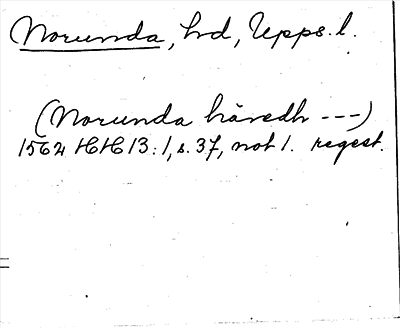 Norunda, hd, Upps. l.
(Norunda häredh ---)
1562 HH 13:1, s. 37, not 1. regest.